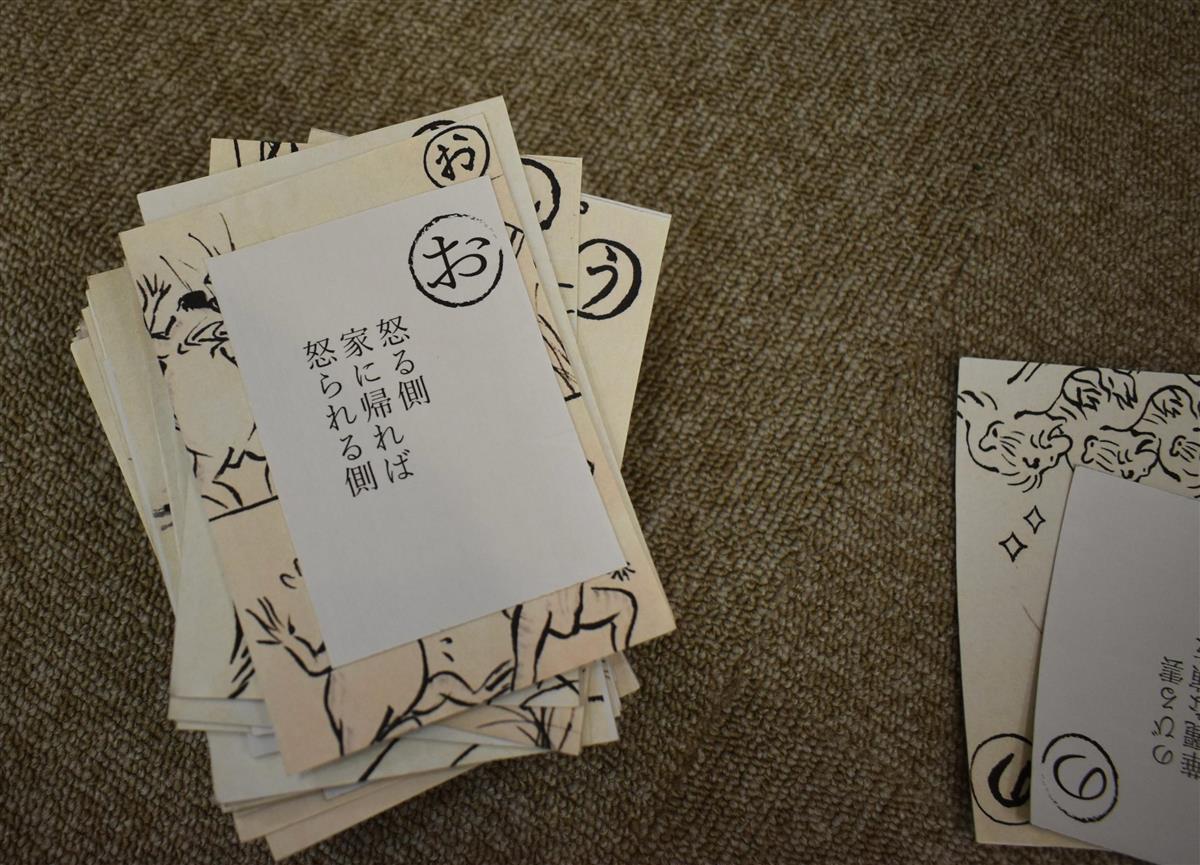 お
お
怒る側
家に帰れば
怒られる側
う
の
のびる雲